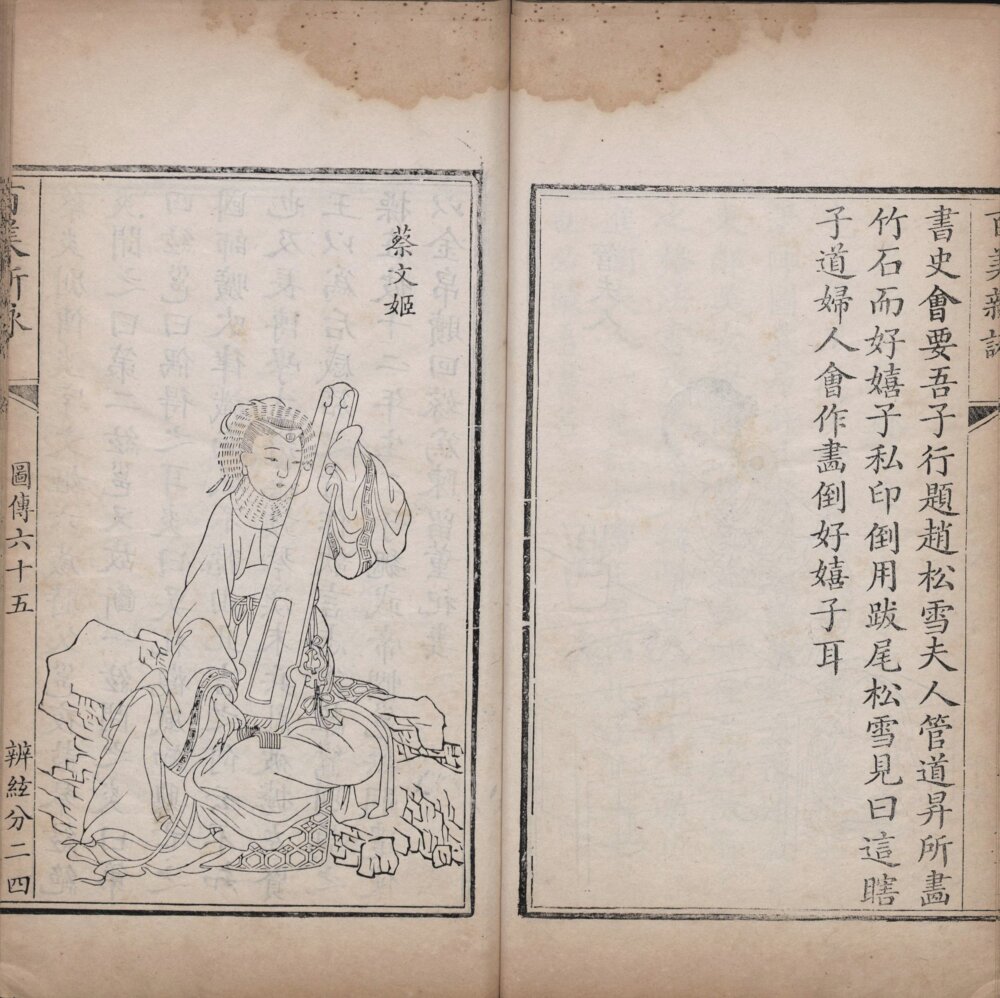 百美新詠
書史會要吾子行題趙松雪夫人管道昇所畵
竹石而好嬉子私印倒用跋尾松雪見曰這瞎
子道婦人會作畵倒好嬉子耳
蔡文姬
百美新詠
圖傳六十五
辨絃分二四